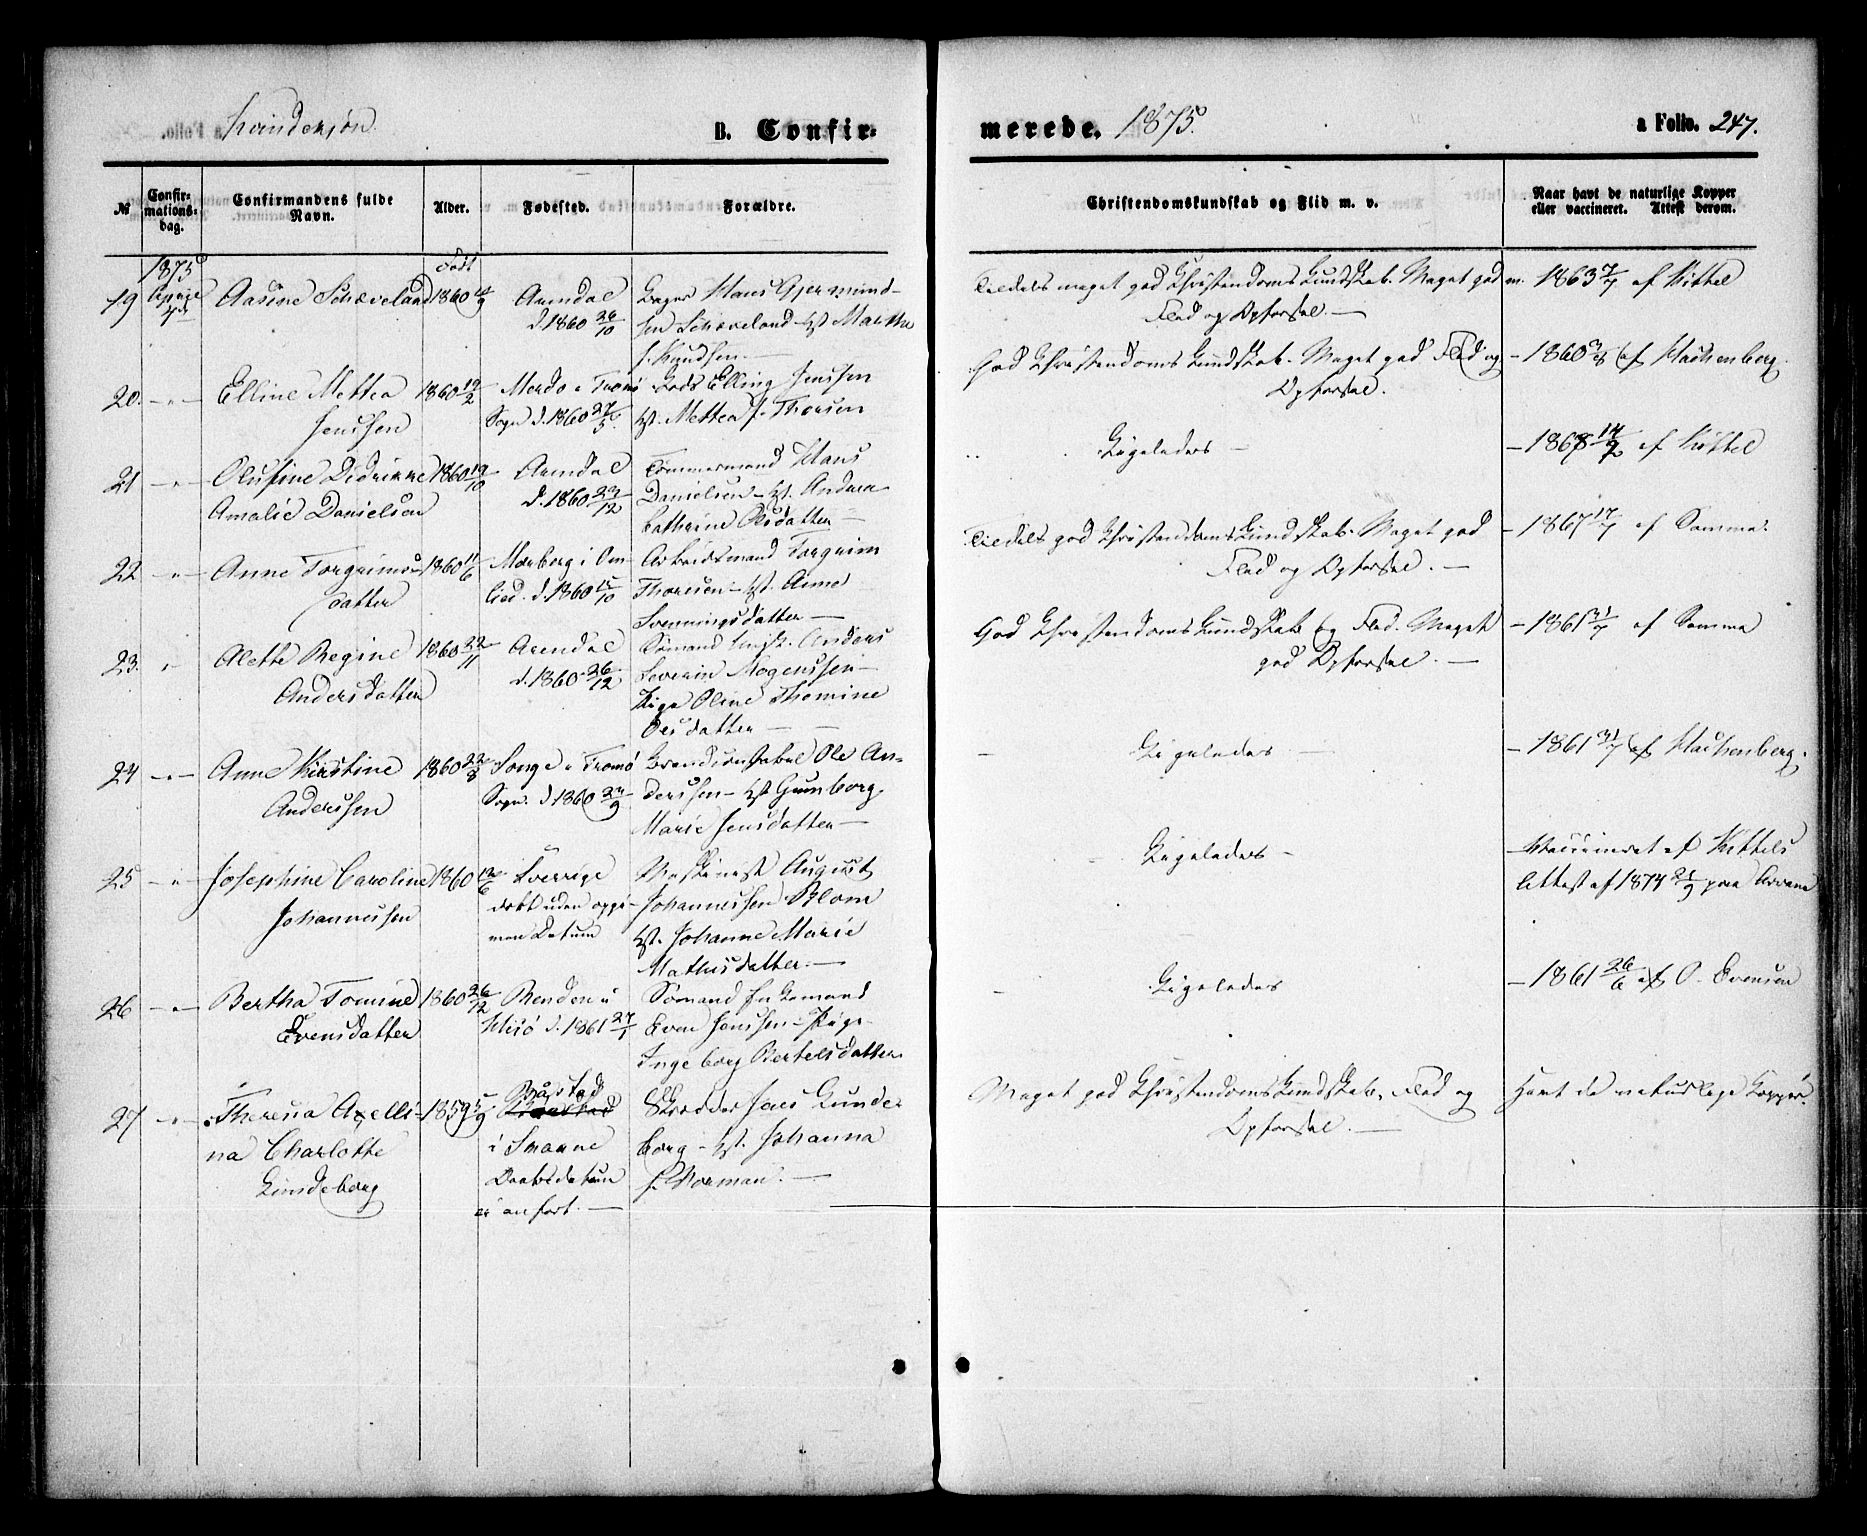 Kvindekjøn.
B. Confir-
merede. 1875.
a Folio. 247.
№
Confir-
mations-
dag.
Confirmandens fulde
Navn.
Alder.
Fødested.
Forældre.
Christendomskundskab og Flid m. v.
Naar havt de naturlige Kopper
eller vaccineret. Attest derom.
1875
Født
19
Aasine Schæveland
1860
Arendal
d. 1860 26/10
Hans Gjermund-
sen Schæveland Hst Marthe
f. Knudsen.
Tildels meget god Christendoms Kundskab. Meget god
Flid og Opførsel. —
1863 7/7 af Kittel
20. — " —
Elline Mettea
Jenssen
1860 19/2
Merdø i Tromø
Sogn d. 1860 27/5
Lods Elling Jenssen
Hst. Mettea f. Thorsen
God Christendoms Kundskab. Meget god Flid og
Opførsel.
— 1860 af Hachenberg.
21 — " —
Olufine Didrikke
Amalie Danielsen
1860 19/10
Arendal
d. 1860 23/12
Tømmermand Hans
Danielsen — Hst. Andrea
Cathrine Olsdatter —
Ligeledes —
— 1868 14/9 af Kittel
22 — " —
Anne Torgrims-
datter
1860 11/6
i Om-
lied. d. 1860 15/10
Arbeidsmand Torgrim
Thorsen — Hst. Anne
Svenningsdatter —
Tildels god Christendoms Kundskab. Meget god
Flid og Opførsel. —
— 1867 17/7 af Samme.
23. "
Alette Regine
Andersdatter
1860 22/11
Arendal
d. 1860 26/12
Sømand Anders
Severin Mogenssen —
Pige Oline Thomine
Olsdatter —
God Christendoms Kundskab og Flid. Meget
god Opførsel. —
— 1861 31/7 af Samme
24 — " —
Anne Kirstine
Anderssen
1860 22/8
Songe i Tromø
Sogn. d. 1860
Brandconstabel Ole An-
derssen — Hst Gunborg
Marie Jensdatter —
Ligeledes —
— 1861 31/7 af Hachenberg.
25 — " —
Josephine Caroline
Johannessen
1860 12/6
Sverrige
døbt uden opgi-
ven Datum
Maskinist August
Johannessen Blom
Hst. Johanne Marie
Mathisdatter. —
Ligeledes —
Vaccineret af Kittels
Attest af 1874 21/9
26 — " —
Bertha Tomine
Evensdatter
1860 26/12
Renden i
Hisø d. 1861 27/1
Sømand
Even Jenssen — Pige
Ingeborg Bertelsdatter
Ligeledes
— 1861 26/6 af O. Evensen
27 — " —
Theresia Axelli-
na Charlotte
Lundeborg
1859 5/9
Båstad
i Skaane
Daabsdatum
ei anført. —
Skrædder Jens Lunde-
borg — Hst. Johanna
f. Norman. —
Meget god Christendoms Kundskab, Flid og
Opførsel. —
Havt de naturlige Kopper.